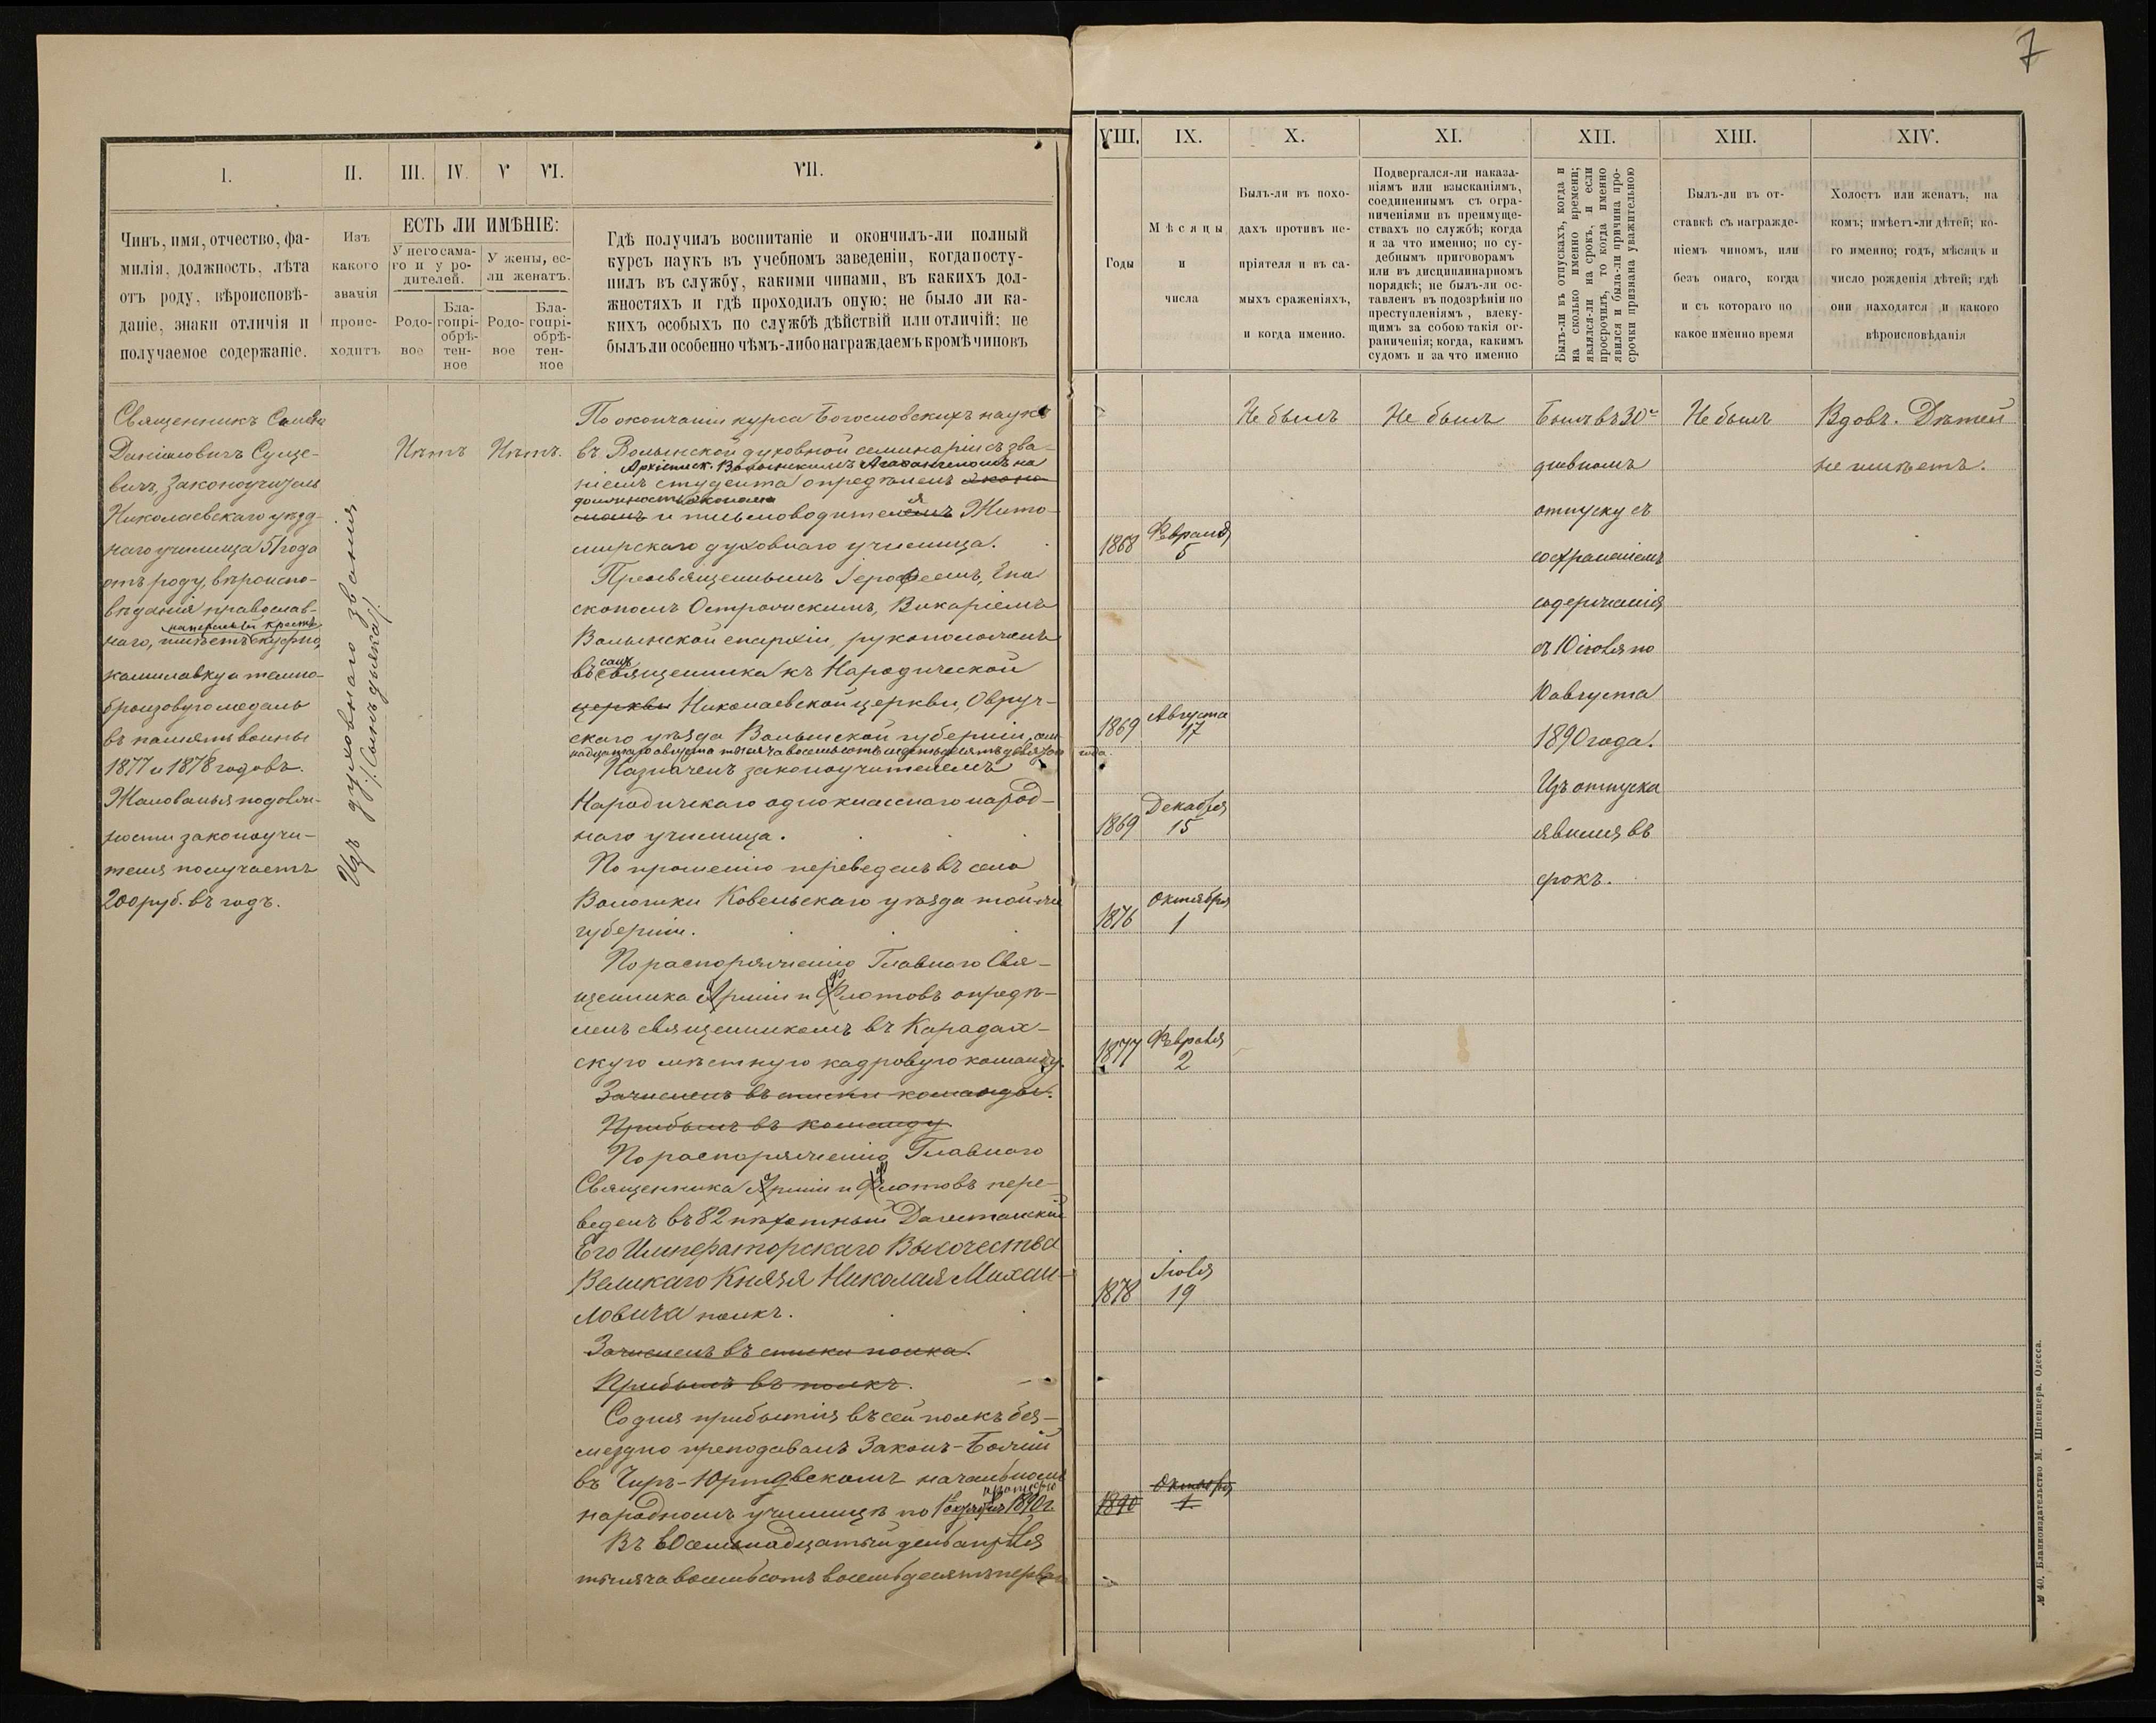 7
I.
II.
III.
IV.
V
VI.
VII.
Чинъ, имя, отчество, фа-
милія, должность, лѣта
отъ роду, вѣроисповѣ-
даніе, знаки отличія и
получаемое содержаніе.
Изъ
какого
званія
проис-
ходитъ
ЕСТЬ ЛИ ИМѢНІЕ:
У него сама-
го и у ро-
дителей.
У жены, ес-
ли женатъ.
Родо-
вое
Бла-
гопрі-
обрѣ-
тен-
ное
Родо-
вое
Бла-
гопрі-
обрѣ-
тен-
ное
Гдѣ получилъ воспитаніе и окончилъ-ли полный
курсъ наукъ въ учебномъ заведеніи, когда посту-
пилъ въ службу, какими чинами, въ какихъ дол-
жностяхъ и гдѣ проходилъ оную; не было ли ка-
кихъ особыхъ по службѣ дѣйствій или отличій; не
былъ ли особенно чѣмъ-либо награждаемъ кромѣ чиновъ
Священникъ
Даніиловичъ Суще-
вичъ, Законоучитель
Николаевскаго уѣзд-
наго училища 51 года
отъ роду, вѣроиспо-
вѣданія православ-
наперсный крестъ
наго, имѣетъ скуфью,
камилавку и темно-
бронзовую медаль
въ память войны
1877 и 1878 годовъ.
Жалованья по долж-
ности законоучи-
теля получаетъ
200 руб. въ годъ.
Изъ духовнаго званія
/:Сынъ дьяка:/
Нѣтъ
Нѣтъ.
По окончаніи курса Богословскихъ наукъ
въ Волынской духовной семинаріи съ зва-
Архіеписк. Волынскимъ Агаѳангеломъ на
ніемъ студента опредѣленъ эконо-
должность эконома
момъ и письмоводителемъ Жито-
мирскаго духовнаго училища.
Преосвященнымъ Іероѳеемъ, Епи
скопомъ Острожскимъ, Викаріемъ
Волынской епархіи, рукоположенъ
въ санъ священника къ Народической
церкви Николаевской церкви, Овруч-
скаго уѣзда Волынской губерніи, сем
надцатаго августа тысяча восемьсотъ шестьдесятъ девятаго года.
Назначенъ законоучителемъ
Народичскаго одноклассного народ-
наго училища.
По прошенію переведенъ въ село
Воложки Ковельскаго уѣзда той-же
губерніи.
По распоряженію Главнаго Свя-
щенника Арміи и Флотовъ опредѣ-
ленъ священникомъ въ Карадах-
скую мѣстную кадровую команду.
Зачисленъ въ списки команды.
Прибылъ въ команду.
По распоряженію Главнаго
Священника Арміи и Флотовъ пере-
веденъ въ 82 пѣхотный Дагестанскій
Его Императорскаго Высочества
Великаго Князя Николая Михаи-
ловича полкъ.
Зачисленъ въ списки полка.
Прибылъ въ полкъ.
Со дня прибытія въ сей полкъ без-
мездно преподавалъ Законъ-Божій
въ Чиръ-Юртовскомъ начальномъ
народномъ училищѣ по 1 октября 1890 г.
Въ восемнадцатый день апрѣля
тысяча восемьсотъ восемьдесятъ перва
VIII.
IX.
X.
XI.
XII.
XIII.
XIV.
Годы
Мѣсяцы
и
числа
Былъ-ли въ похо-
дахъ противъ не-
пріятеля и въ са-
мыхъ сраженіяхъ,
и когда именно.
Подвергался-ли наказа-
ніямъ или взысканіямъ,
соединеннымъ съ огра-
ниченіями въ преимуще-
ствахъ по службѣ; когда
и за что именно; по су-
дебнымъ приговорамъ
или въ дисциплинарномъ
порядкѣ; не былъ-ли ос-
тавленъ въ подозрѣніи по
преступленіямъ, влеку-
щимъ за собою такія ог-
раниченія; когда, какимъ
судомъ и за что именно
Былъ-ли въ отпускахъ, когда и
на сколько именно времени;
являлся-ли на срокъ, и если
просрочилъ, то когда именно
явился и была-ли причина про-
срочки признана уважительною
Былъ-ли въ от-
ставкѣ съ награжде-
ніемъ чиномъ, или
безъ онаго, когда
и съ котораго по
какое именно время
Холостъ или женатъ, на
комъ; имѣетъ-ли дѣтей; ко-
го именно; годъ, мѣсяцъ и
число рожденія дѣтей; гдѣ
они находятся и какого
вѣроисповѣданія
1868
Февраля
5
1869
Августа
17
1869
Декабря
15
1876
Октября
1
1877
Февраля
2
1878
Іюля
19
1890
Октября
1
Не былъ
Не былъ
Былъ въ 30-
дневномъ
отпуску съ
сохраненіемъ
содержанія
съ 10 іюля по
10 августа
1890 года.
Изъ отпуска
явился въ
срокъ.
Не былъ
Вдовъ. Дѣтей
не имѣетъ.
№ 40. Бланкоиздательство М. Шпенцера. Одесса.